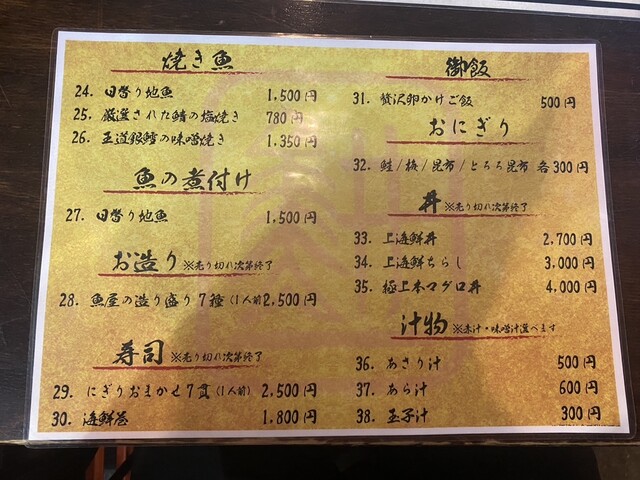 焼き魚
24. 日替り地魚 1,500円
25. 厳選された鯖の塩焼き 780円
26. 王道銀鱈の味噌焼き 1,350円
魚の煮付け
27. 日替り地魚 1,500円
お造り ※売り切れ次第終了
28. 魚屋の造り盛り7種(1人前) 2,500円
寿司 ※売り切れ次第終了
29. にぎりおまかせ7貫(1人前) 2,500円
30. 海鮮巻 1,800円
御飯
31. 贅沢卵かけご飯 500円
おにぎり
32. 鮭/梅/昆布/とろろ昆布 各300円
丼 ※売り切れ次第終了
33. 上海鮮丼 2,700円
34. 上海鮮ちらし 3,000円
35. 極上本マグロ丼 4,000円
汁物 ※赤汁・味噌汁選べます
36. あさり汁 500円
37. あら汁 600円
38. 玉子汁 300円